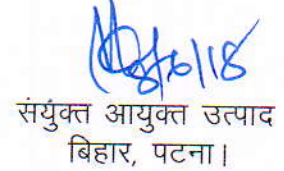 8/6/18
संयुक्त आयुक्त उत्पाद
बिहार, पटना।